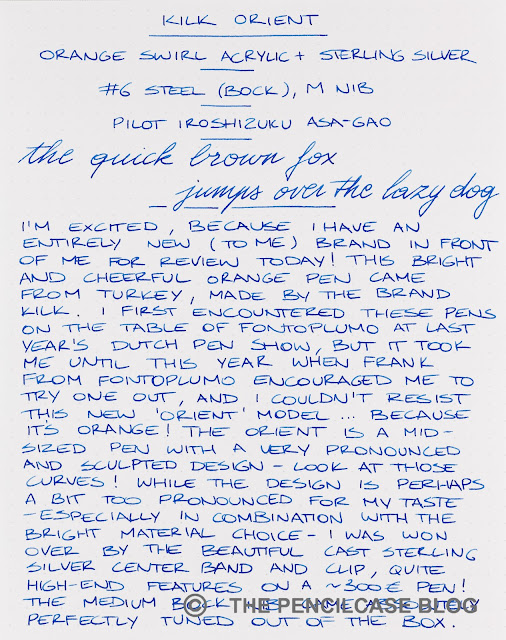 KILK ORIENT
ORANGE SWIRL ACRYLIC + STERLING SILVER
#6 STEEL (BOCK), M NIB
PILOT IROSHIZUKU ASA-GAO
the quick brown fox
jumps over the lazy dog
I'M EXCITED, BECAUSE I HAVE AN
ENTIRELY NEW (TO ME) BRAND IN FRONT
OF ME FOR REVIEW TODAY! THIS BRIGHT
AND CHEERFUL ORANGE PEN CAME
FROM TURKEY, MADE BY THE BRAND
KILK. I FIRST ENCOUNTERED THESE PENS
ON THE TABLE OF FONTOPLUMO AT LAST
YEAR'S DUTCH PEN SHOW, BUT IT TOOK
ME UNTIL THIS YEAR WHEN FRANK
FROM FONTOPLUMO ENCOURAGED ME TO
TRY ONE OUT, AND I COULDN'T RESIST
THIS NEW 'ORIENT' MODEL ... BECAUSE
IT'S ORANGE! THE ORIENT IS A MID-
SIZED PEN WITH A VERY PRONOUNCED
AND SCULPTED DESIGN - LOOK AT THOSE
CURVES! WHILE THE DESIGN IS PERHAPS
A BIT TOO PRONOUNCED FOR MY TASTE
- ESPECIALLY IN COMBINATION WITH THE
BRIGHT MATERIAL CHOICE - I WAS WON
OVER BY THE BEAUTIFUL CAST STERLING
SILVER CENTER BAND AND CLIP, QUITE
HIGH-END FEATURES ON A ~300€ PEN!
THE MEDIUM BOCK NIB CAME ABSOLUTELY
© THE PENCILCASE BLOG
PERFECTLY TUNED OUT OF THE BOX.